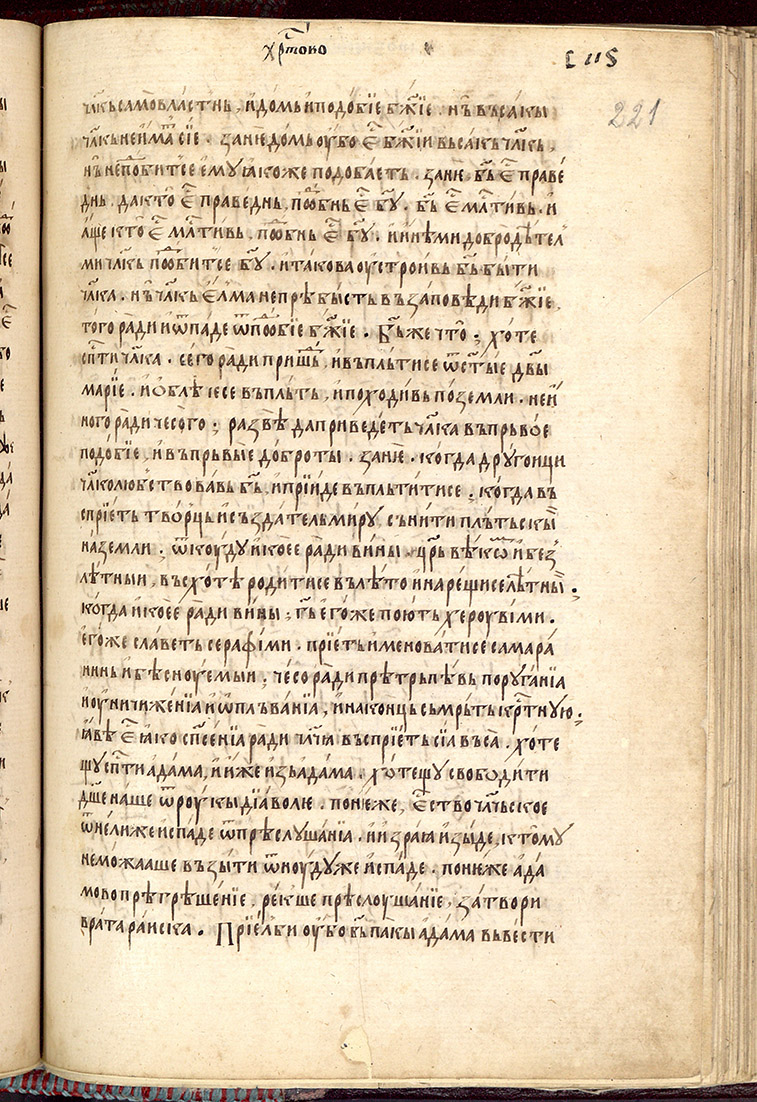 хрⷭ҇тово
с҃иѕ
221
чл҃кь самовластнь, и домь и подобїе бж҃їе. нь̏ въсакы
чл҃кь не има́ть сїе. зане̏ домь ѹ҆бо е҆сть бж҃їи въсакь чл҃кь,
нь̏ не подобитсе ємꙋ ꙗкоже подобаеть. зане̏ б҃ь е҆сть праве
днь. да кто̏ е҆сть праведнь, подобнь е҆сть б҃ꙋ. б҃ь е҆сть млⷭ҇тивь. и
а҆ще кто̏ е҆сть млⷭ҇тивь. подобнь е҆сть б҃ꙋ. и инѣми добродѣтел
ми чл҃кь подобитсе б҃ꙋ. и такова ѹстроивь б҃ь быти
чл҃ка. нь̏ чл҃кь е҆лма не прѣбысть въ заповѣди бж҃їе,
того̀ ради и ѿпаде ѿ подобїе бж҃їе. Б҃ь же что̏; хоте
сп҃сти чл҃ка. сего ради пришь́дь, и въплътисе ѿ ст҃ые дв҃ы
марїе. и ѻблѣчесе въ плъть, и походивь по земли. не и
ного ради чесого; развѣ да приведеть чл҃ка въ прьвое
подобїе, и въ прьвые доброты. зане̏. когда дрꙋгоици
чл҃колюбствовавь б҃ь, и прїиде въплътитисе; когда въ
спрїеть творць и създатель мирꙋ, сънити плътьскы̏
на земли; ѿкоудꙋ и коее ради вины. цр҃ь вѣкѡⷨ и без̾
лѣтныи, въсхотѣ родитисе въ лѣто и нарещисе лѣтны̏;
когда и коее ради вины; г҃ь егоже поють херѹвїми.
егоже славеть серафїми. прїеть именоватисе самара
нинь и бѣсноуемыи; чесо ради прѣтрьпѣвь порꙋганїа
и оуничиженїа и ѡплъванїа, и наконць съмрьть крⷭ҇тнꙋю;
ꙗвѣ е҆сть ꙗко спⷭ҇енїа ради чл҃ча въспрїеть сїа въса. хоте
щꙋ сп҃сти адама, и иже изь адама. хотещꙋ свободити
дш҃е наше ѿ роукы дїаволю. понѥже, е҆ство чл҃чьское
ѿнелиже испаде ѿ прѣслꙋшанїа. и из раꙗ изыде, к томꙋ
не можааше възыти ѿноудꙋже испаде. понѥже ада
мово прѣгрѣшенїе, рекше прѣслоушанїе, затвори
врата раиска. Прїелби ѹ҆бо б҃ь пакы адама въвести